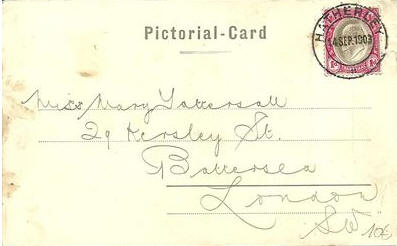 Pictorial-Card
HATHERLEY
14 SEP. 1903
Miss Mary Tattersall
29 Kersley St.
Battersea
London
SW
10€